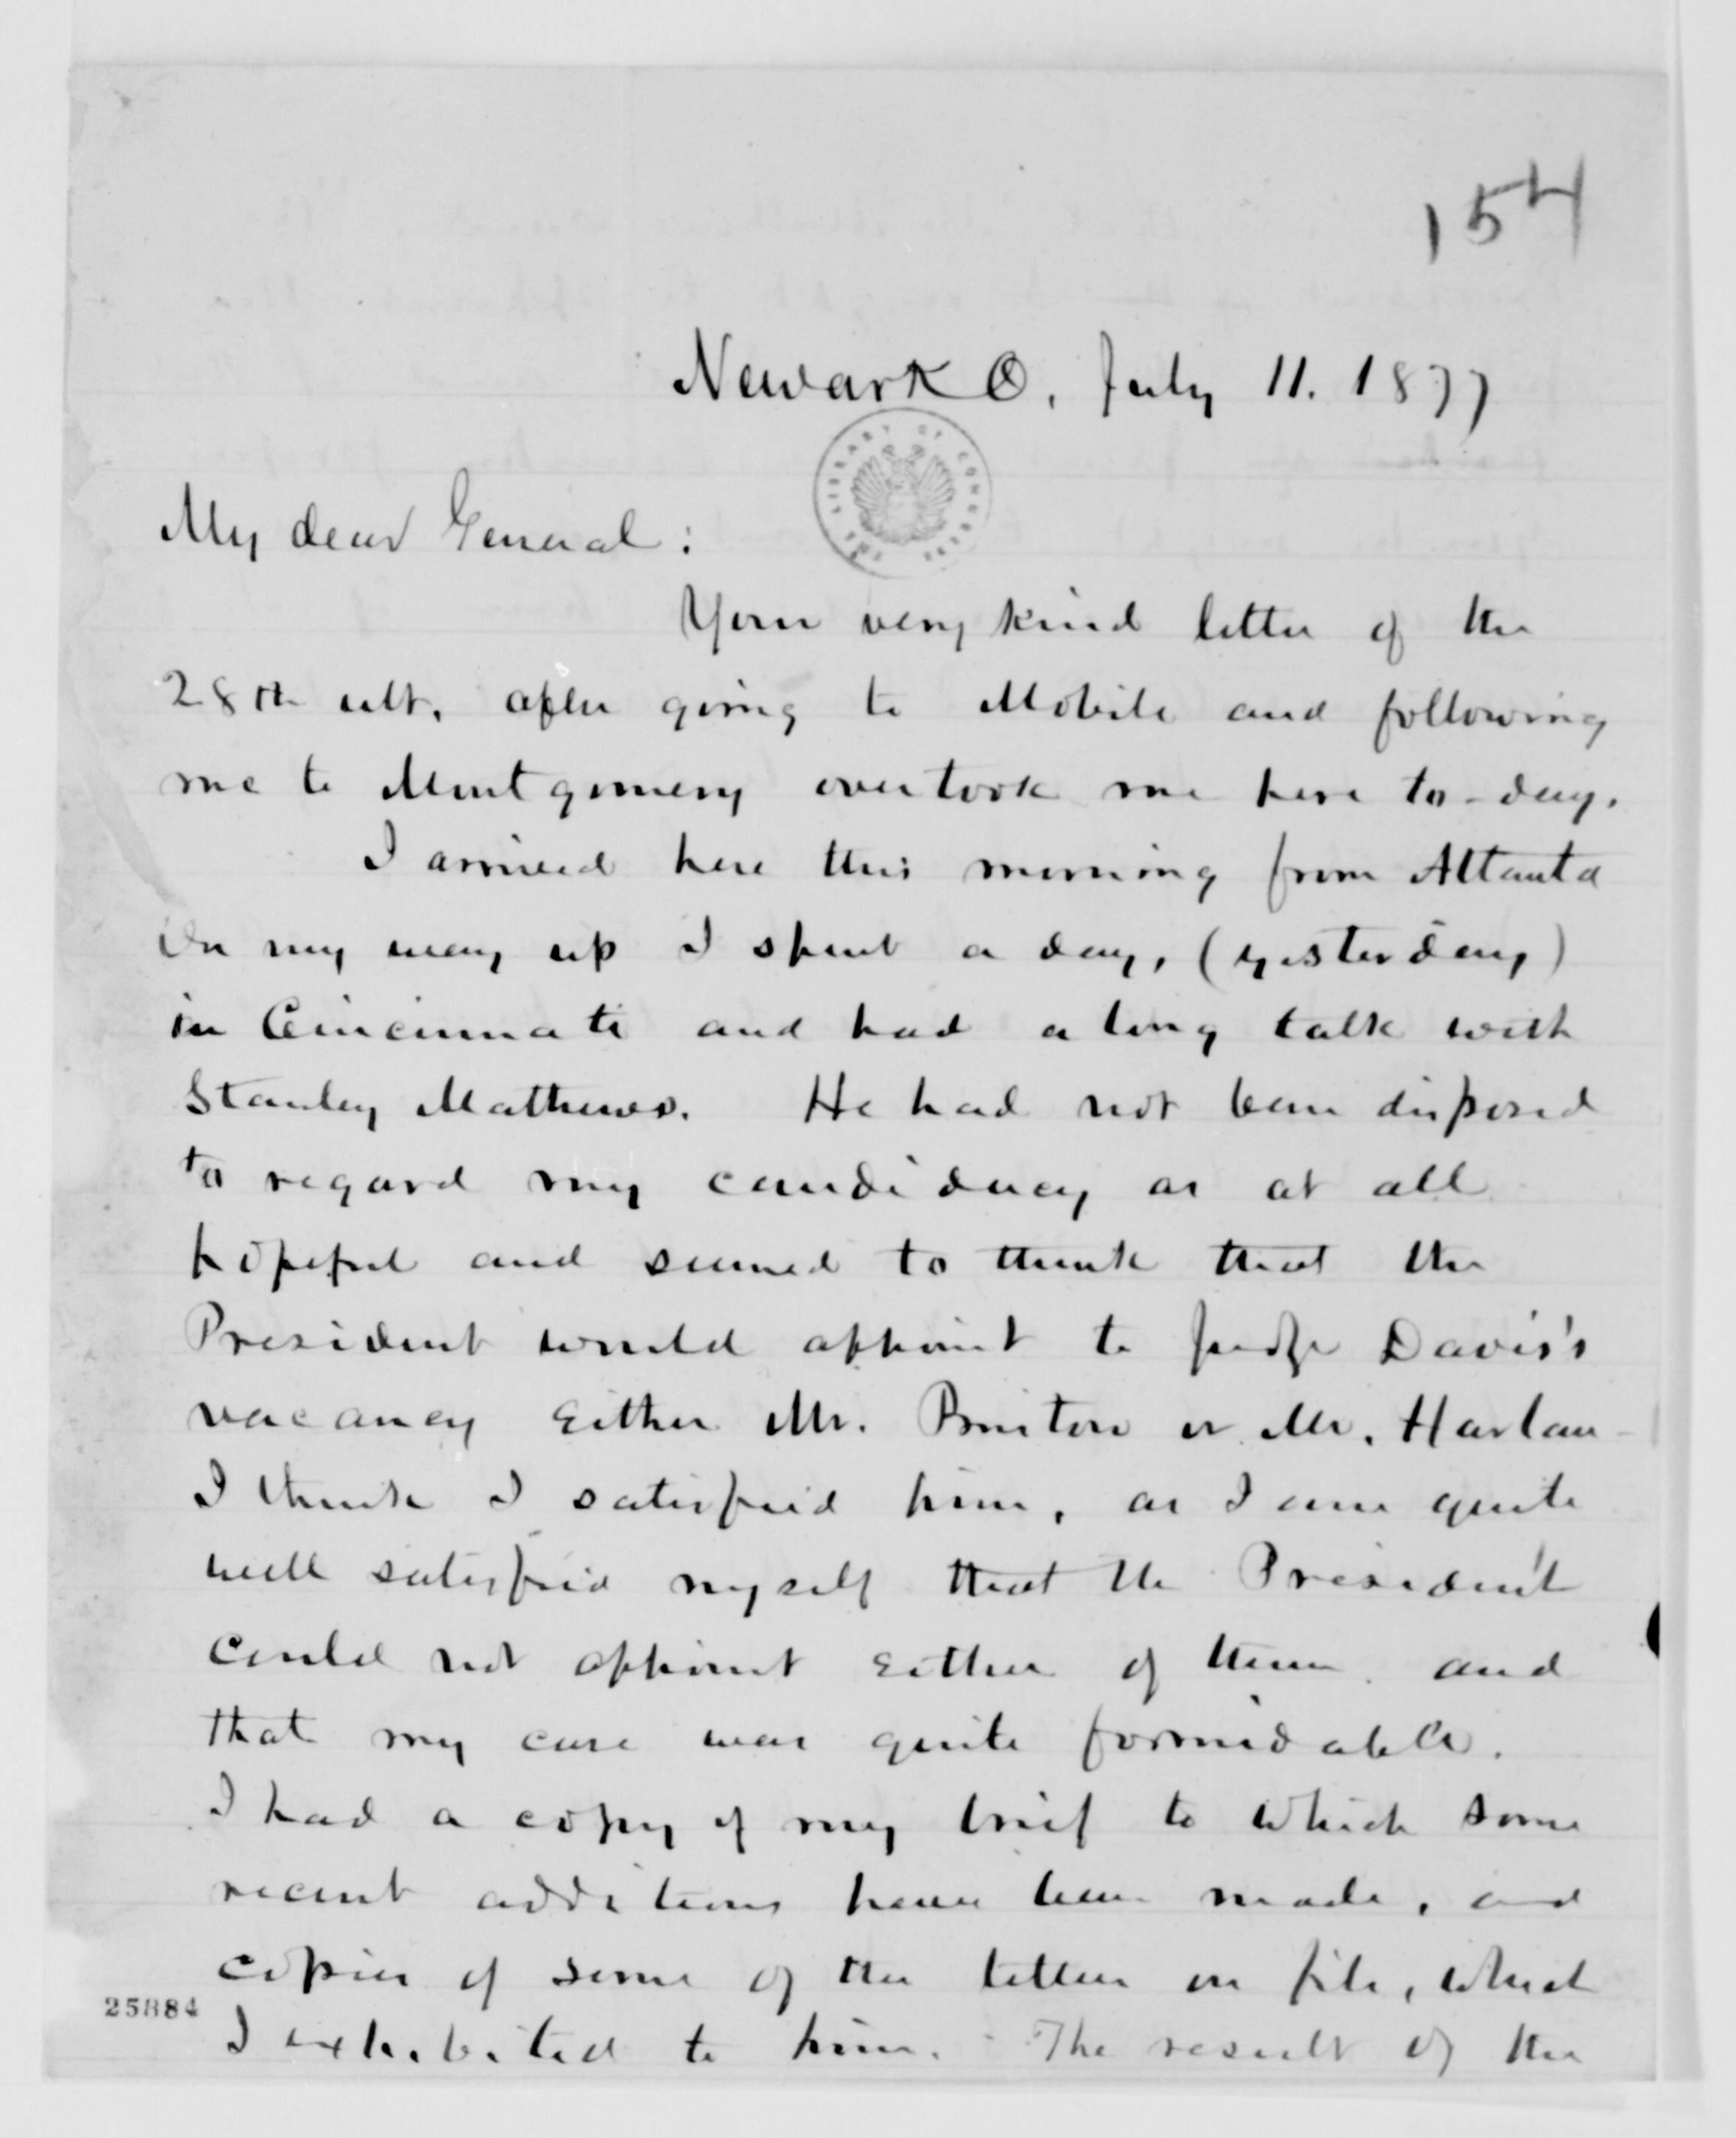 154
Newark O, July 11. 1877
THE LIBRARY OF CONGRESS
My dear General:
Your very kind letter of the
28th ult, after going to Mobile and following
me to Montgomery overtook me here to-day.
I arrived here this morning from Atlanta
On my way up I spent a day, (yesterday)
in Cincinnati and had a long talk with
Stanley Mathews. He had not been disposed
to regard my candidacy as at all
hopeful and seemed to think that the
President would appoint to Judge Davis's
vacancy either Mr. Bristow or Mr. Harlan
I think I satisfied him, as I am quite
well satisfied myself that the President
could not appoint either of them and
that my case was quite formidable.
I had a copy of my brief to which some
recent additions have been made, and
copies of some of the letters on file, which
I exhibited to him. The result of the
25884